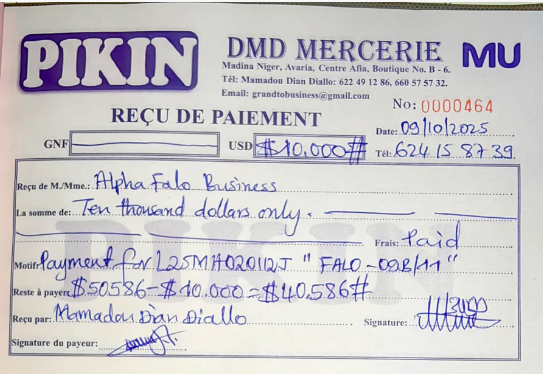 PIKIN
DMD MERCERIE MU
Madina Niger, Avaria, Centre Afia, Boutique No. B - 6.
Tél: Mamadou Dian Diallo: 622 49 12 86, 660 57 57 32.
Email: grandtobusiness@gmail.com
No: 0000464
REÇU DE PAIEMENT
Date: 09/10/2025
GNF USD #$10.000#
Tél: 624 15 87 39
Reçu de M./Mme.: Alpha Falo Business
La somme de: Ten thousand dollars only.
Frais: Paid
Motif: Payment for L25MH02012J " FALO-09B/11 "
Reste à payer: $50586-$10.000=$40.586#
Reçu par: Mamadou Dian Diallo
Signature:
Signature du payeur:
PIKIN